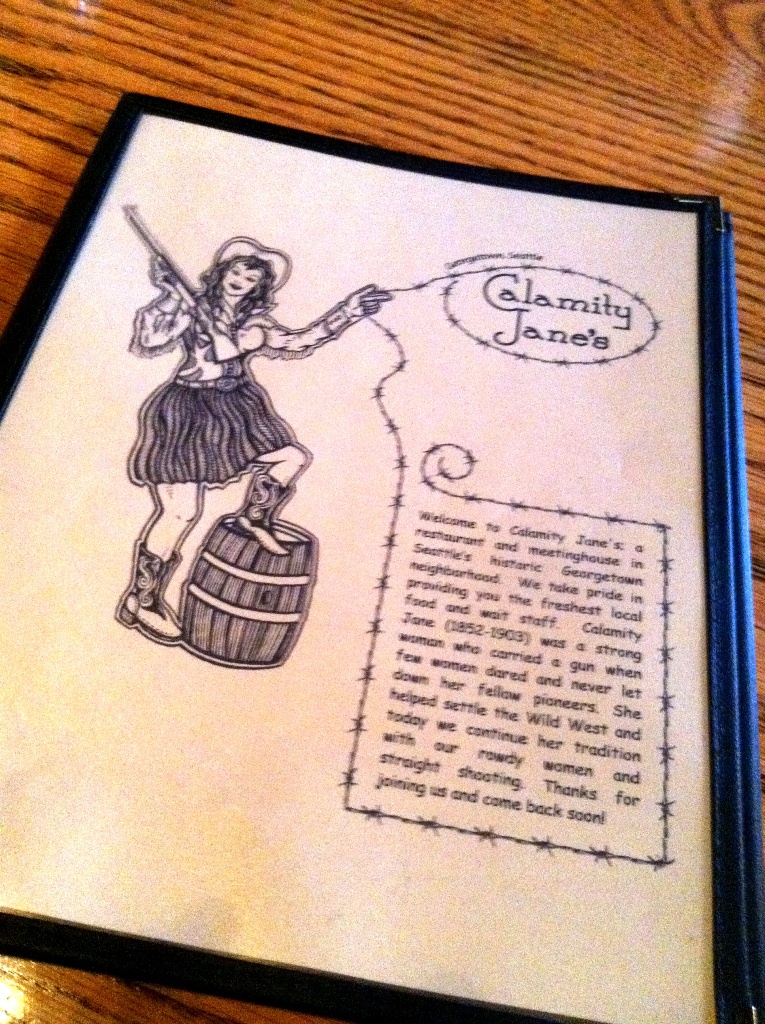 Georgetown, Seattle
Calamity
Jane's
Welcome to Calamity Jane's; a
restaurant and meetinghouse in
Seattle's historic Georgetown
neighborhood. We take pride in
providing you the freshest local
food and wait staff. Calamity
Jane (1852-1903) was a strong
woman who carried a gun when
few women dared and never let
down her fellow pioneers. She
helped settle the Wild West and
today we continue her tradition
with our rowdy women and
straight shooting. Thanks for
joining us and come back soon!